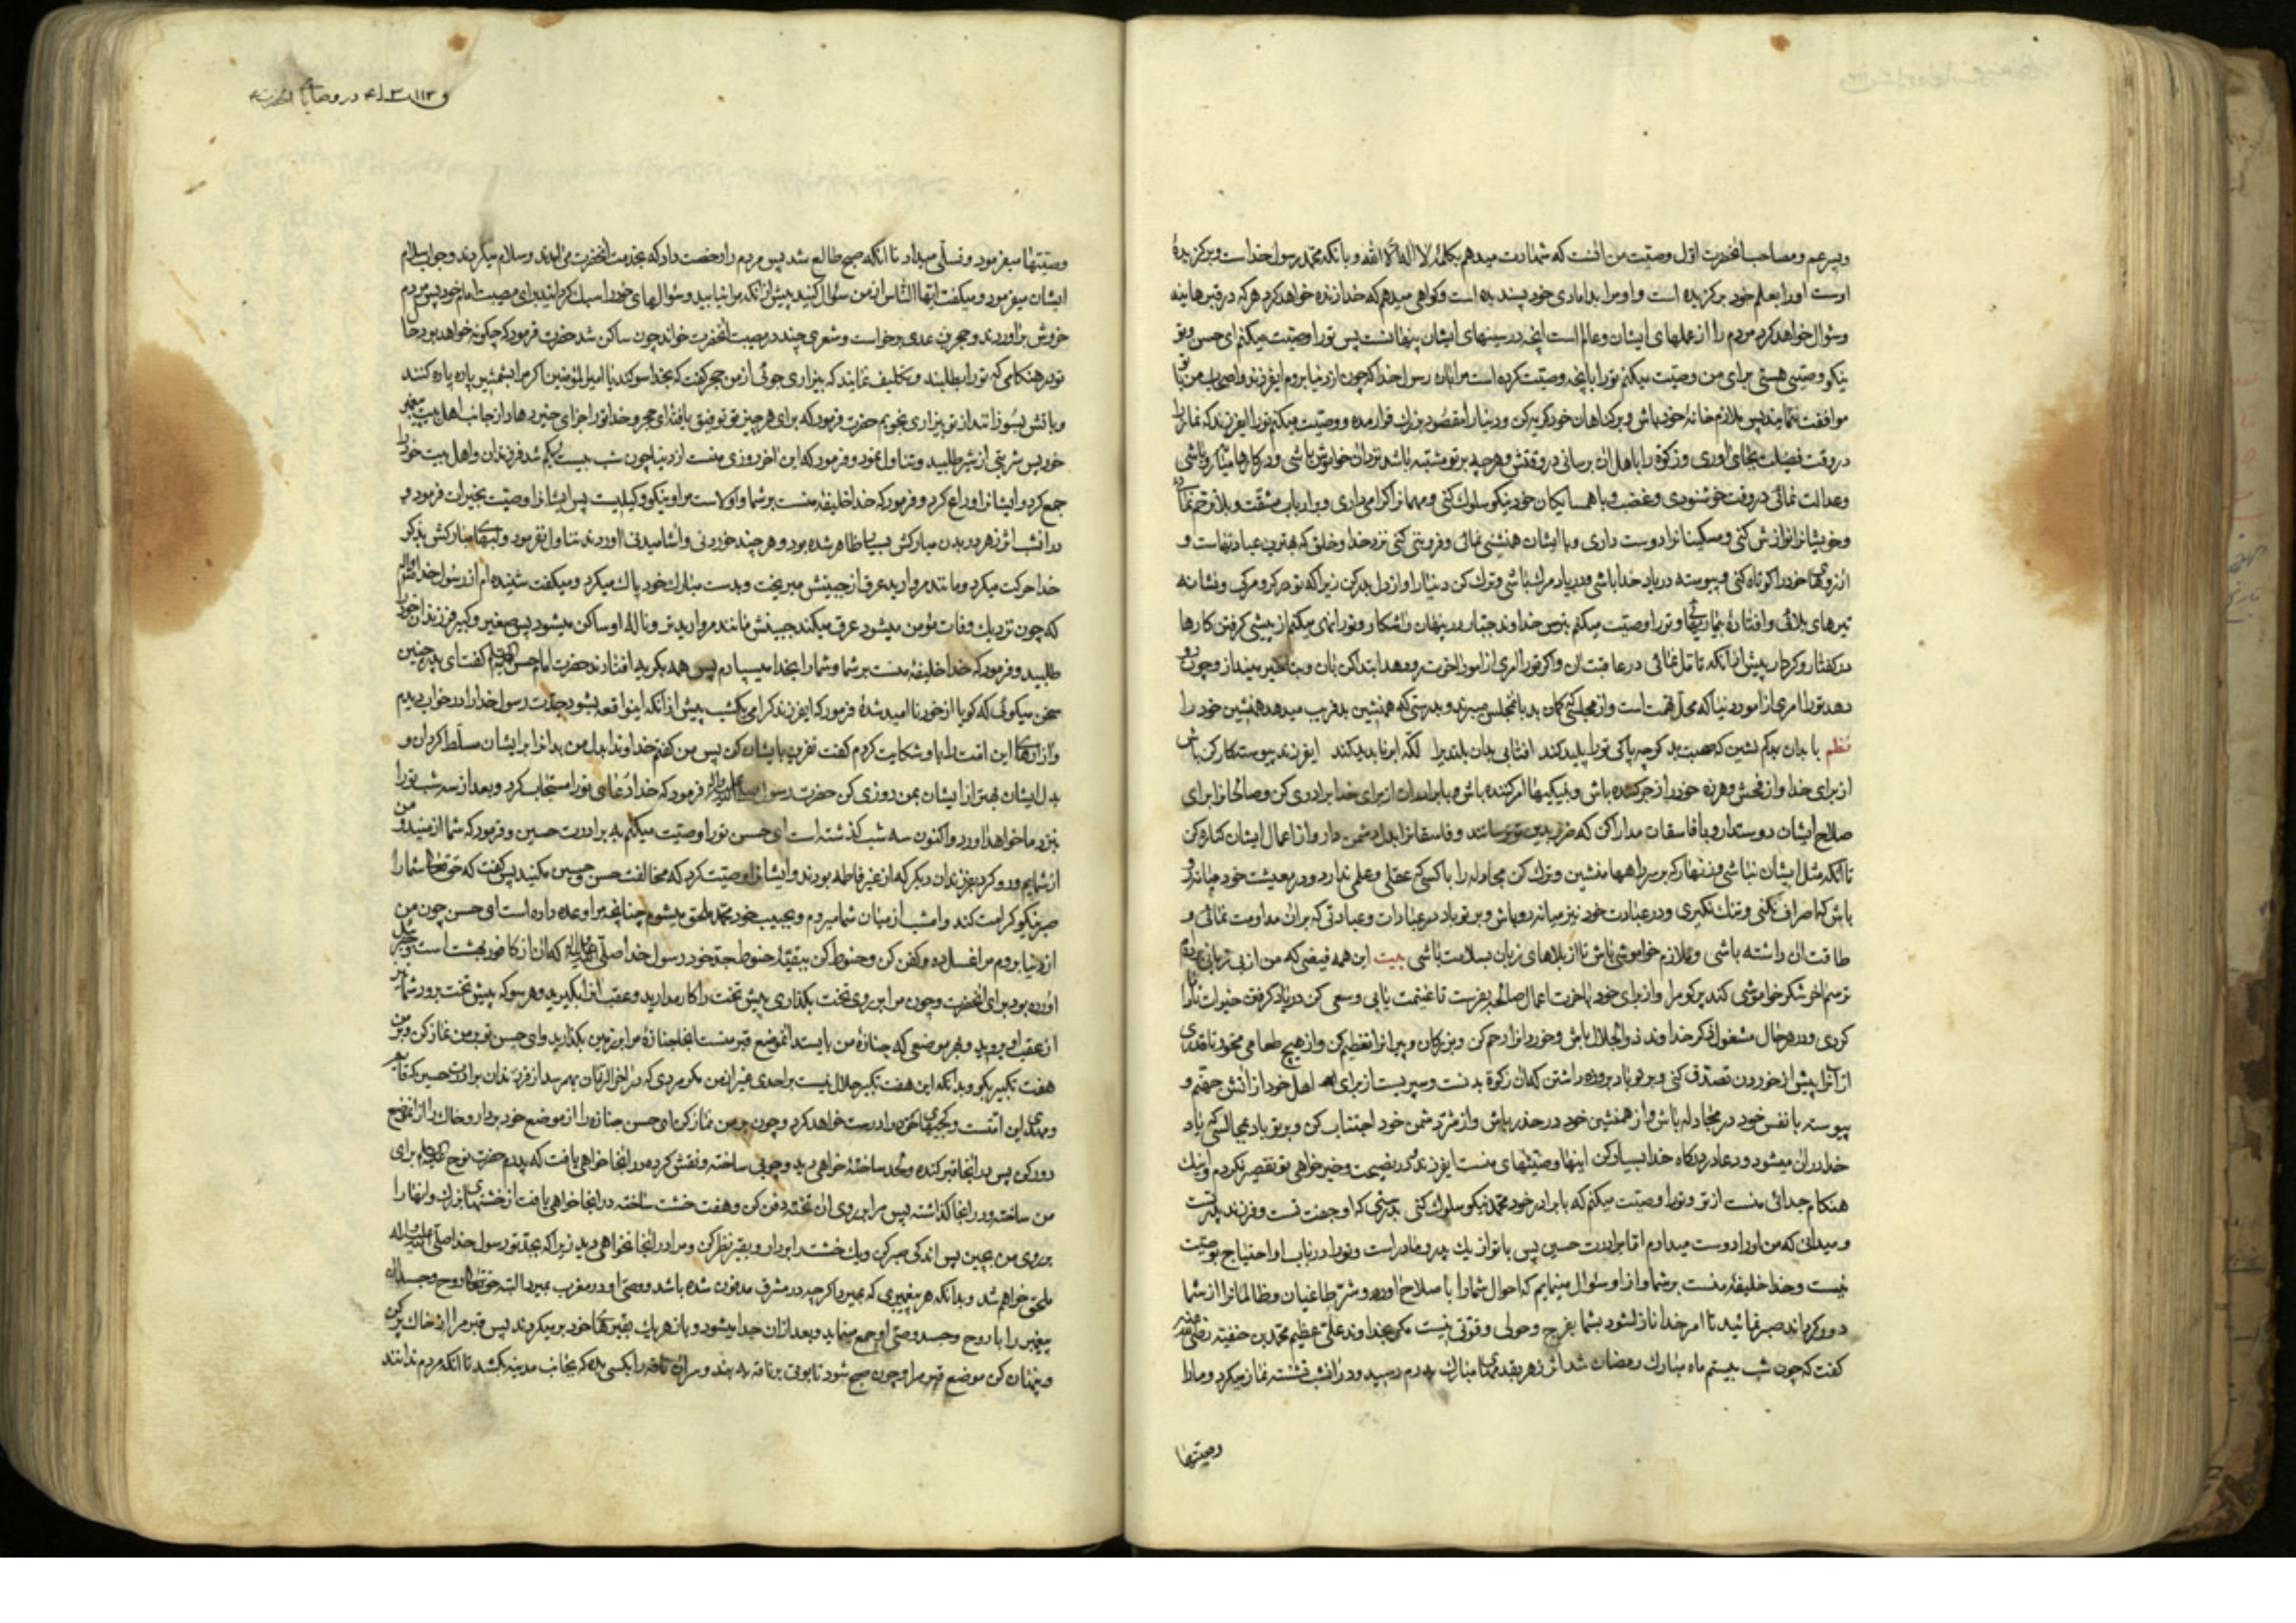 وپسر عم ومصاحب انحضرت اوّل وصیّت من انست که شهادت میدهم بکلمهٔ لا اله الّا الله و بانکه محمّد رسول خداست وبرکزیدهٔ
اوست اورا بعلم خود برکزیده است و اورا بامدادی خود پسندیده است وکواهی میدهم که خدا زنده خواهد کرد هرکه در قبرهاینه
وسؤال خواهد کرد مردم را از عملهای ایشان وعالم است انچه در سینهای ایشان پنهانست پس تورا وصیّت میکنم ای حسن وتو
نیکو وصیّی هستی برای من وصیّت میکنم تورا بانچه وصیّت کرده است مرا بان رسول خدا که چون از دنیا بروم ایفرزند واصحاب من با تو
موافقت ننمایند پس ملازم خانهٔ خود باش وبر کناهان خود کریه کن ودنیا را مقصود بزرك قرار مده ووصیّت میکنم تورا ایفرزند که نماز را
در وقت فضیلت بجای اوری وزکوة را باهل ان برسانی در وقتش وهرچه برتو مشتبه باشد نزد ان خاموش باشی ودر کارها میانه رو باشی
وعدالت نمائی در وقت خوشنودی وغضب وبا همسایکان خود نیکو سلوك کنی ومهمانرا اکرامی داری وبر ارباب مشقّت وبلا ترحّم نمائی
وخویشانرا نوازش کنی ومسکینانرا دوست داری وبا ایشان همنشینی نمائی وفروتنی کنی نزد خدا وخلق که بهترین عبادتهاست و
ارزوهای خود را کوتاه کنی وپیوسته در یاد خدا باشی ودر یاد مرك باشی وترك کن دنیا را واز دل بدر کن زیرا که تو در کرو مرکی ونشانه
تیرهای بلائی وافتادهٔ بیماریها وتورا وصیّت میکنم بترس خداوند جبّار در پنهان واشکار وتورا نهی میکنم از پیشی کرفتن کارها
در کفتار وکردار پیش از انکه تامّل نمائی در عاقبت ان واکر تورا امری از امور اخرت رو دهد ابتدا کن بان وبتاخیر مینداز وچون رو
دهد تورا امری از امور دنیا که محلّ تهمت است واز مجلسی که کمان بد بانمجلس میبرند وبدرستی که همنشین بد فریب میدهد همنشین خود را
نظم با بدان کم نشین که صحبت بد کرچه پاکی تورا پلید کند افتابی بدان بلندیرا لکّه ابر ناپدید کند ایفرزند پیوسته کار کن باش
از برای خدا واز فحش وهرزه خود را زجر کننده باش وبنیکیها امر کننده باش وبا برادران از برای خدا برادری کن وصالحانرا برای
صلاح ایشان دوستدار وبا فاسقان مدارا کن که ضرر بدین تو نرسانند وفاسقانرا بدل دشمن دار واز اعمال ایشان کناره کن
تا انکه مثل ایشان نباشی وزنهار که بر سر راهها منشین وترك کن مجادله را با کسی که عقلی وعلمی ندارد ودر معیشت خود میانه رو
باش که اصراف نکنی وتنك نکیری ودر عبادت خود نیز میانه رو باش وبر تو باد در عبادات وعبادتی که بران مداومت نمائی و
طاقت ان داشته باشی وملازم خواموشی باش تا از بلاهای زبان بسلامت باشی بیت این همه فیضی که من از بی زبانی یافتم
ترسم اخر شکر خواموشی کند پرکو مرا واز برای خود باخرت اعمال صالحه بفرست تا غنیمت یابی وسعی کن در یاد کرفتن خیرات تا دانا
کردی ودر هر حال مشغول ذکر خداوند ذوالجلال باش وخوردانرا رحم کن وبزرکان وپیرانرا تعظیم کن واز هیچ طعامی مخور تا قدری
از انرا پیش از خوردن تصدّق کنی وبر تو باد بروزه داشتن که ان زکوة بدنست وسپریست از برای اهل خود از اتش جهنّم و
پیوسته با نفس خود در مجادله باش واز همنشین خود در حذر باش واز شرّ دشمن خود اجتناب کن وبر تو باد بمجالسی که یاد
خدا در ان میشود ودعا در درکاه خدا بسیار کن اینها وصیّتهای منست ایفرزند در نصیحت وخیر خواهی تو تقصیر نکردم واینك
هنکام جدائی منست از تو وتورا وصیّت میکنم که با برادر خود محمّد نیکو سلوك کنی بدرستی که او جفت تست وفرزند پدر تست
ومیدانی که من اورا دوست میدارم امّا برادرت حسین پس با تو از یك پدر ومادر است وتورا در باب او احتیاج بوصیّت
نیست وخدا خلیفهٔ منست بر شما واز او سئوال مینمایم که احوال شما را با صلاح اورد وشرّ طاغیان وظالمانرا از شما
دور کرداند صبر نمائید تا امر خدا نازل شود بشما بفرج وحولی وقوّتی نیست مکر بخداوند علیّ عظیم محمّد بن حنفیّه رضی عنه
کفت که چون شب بیستم ماه مبارك رمضان شد اثر زهر بقدمهای مبارك پدرم رسید ودر انشب نشسته نماز میکرد ومارا
وصیّتها
و ۱۱۳ در وصایا انحضرت
وصیّتها میفرمود وتسلّی میداد تا انکه صبح طالع شد پس مردم را رخصت داد که بخدمت انحضرت می امدند وسلام میکردند وجواب سلام
ایشان میفرمود ومیکفت ایّها النّاس از من سؤال کنید پیش از انکه مرا نیابید وسؤالهای خود را سبك کردانید برای مصیبت امام خود پس مردم
خروش براوردند وحجر بن عدی برخواست وشعری چند در مصیبت انحضرت خواند چون ساکن شد حضرت فرمود که چکونه خواهد بود حال
تو در هنکامی که تورا بطلبند وتکلیف نمایند که بیزاری جوئی از من حجر کفت که بخدا سوکند یا امیرالمؤمنین اکر مرا بشمشیر پاره پاره کنند
وباتش بسوزانند از تو بیزاری نجویم حضرت فرمود که برای هر چیز تو توفیق یافتهٔ ای حجر وخدا تورا جزای خیر دهد از جانب اهل بیت پیغمبر
خود پس شربتی از شیر طلبید وتناول نمود وفرمود که این اخر روزی منست از دنیا چون شب بیست ویکم شد فرزندان واهل بیت خود را
جمع کرد وایشانرا وداع کرد وفرمود که خدا خلیفهٔ منست بر شما واو بس است مرا ونیکو وکیلیست پس ایشانرا وصیّت بخیرات فرمود و
در انشب اثر زهر در بدن مبارکش بسیار ظاهر شده بود وهر چند خوردنی واشامیدنی اوردند تناول نفرمود ولبهای مبارکش بذکر
خدا حرکت میکرد ومانند مروارید عرق از جبینش میریخت وبدست مبارك خود پاك میکرد ومیکفت شنیده ام از رسول خدا
که چون نزدیك وفات مؤمن میشود عرق میکند جبینش مانند مروارید تر ونالهٔ او ساکن میشود پس صغیر وکبیر فرزندان خود را
طلبید وفرمود که خدا خلیفهٔ منست بر شما وشما را بخدا میسپارم پس همه بکریه افتادند حضرت امام حسن کفت ای پدر چنین
سخن میکوئی که کویا از خود نا امید شدهٔ فرمود که ایفرزند کرامی یکشب پیش از انکه اینواقعه بشود جدّت رسول خدا را در خواب دیدم
واز ازارهای این امّت باو شکایت کردم کفت نفرین بایشان کن پس من کفتم خداوندا بدل من بدانرا بر ایشان مسلّط کردان و
بدل ایشان بهتر از ایشان بمن روزی کن حضرت رسول فرمود که خدا دعای تورا مستجاب کرد وبعد از سه شب تورا
بنزد ما خواهد اورد واکنون سه شب کذشته است ای حسن تورا وصیّت میکنم به برادرت حسین وفرمود که شما از منید ومن
از شمایم ورو کرد بفرزندان دیکر که از غیر فاطمه بودند وایشانرا وصیّت کرد که مخالفت حسن وحسین مکنید پس کفت که حق تعالی شما را
صبر نیکو کرامت کند وامشب از میان شما میروم وبحبیب خود محمّد ملحق میشوم چنانچه مرا وعده داده است ای حسن چون من
از دنیا بروم مرا غسل ده وکفن کن وحنوط کن ببقیّهٔ حنوط جدّ خود رسول خدا صلّی الله علیه واله که ان از کافور بهشت است وجبرئیل
اورده بود برای انحضرت وچون مرا بر روی تخت بکذاری پیش تخت را کار مدارید وعقب انرا بکیرید وهر سو که پیش تخت برود شما نیز
از عقب او بروید وهر موضعی که جنازهٔ من بایستد انموضع قبر منست انجا جنازهٔ مرا بر زمین بکذارید وای حسن تو بر من نماز کن وبر من
هفت تکبیر بکو وبدانکه این هفت تکبیر حلال نیست بر احدی غیر از من مکر مردی که در اخر الزّمان بهم رسد از فرزندان برادرت حسین که قائم
ومهدی این امّتست وکجیهای حق را درست خواهد کرد وچون بر من نماز کنی ای حسن جنازه را از موضع خود بردار وخاك را از انموضع
دور کن پس در انجا قبر کنده ولحد ساختهٔ خواهی دید وچوبی ساخته ونقش کرده در انجا خواهی یافت که پدرم حضرت نوح برای
من ساخته ودر انجا کذاشته پس مرا بر روی ان تخته دفن کن وهفت خشت ساخته در انجا خواهی یافت از خشتهای بزرك وانها را
بر روی من بچین پس اندکی صبر کن ویك خشت را بردار وبقبر نظر کن ومرا در انجا نخواهی دید زیرا که بجدّ تو رسول خدا صلّی الله علیه واله
ملحق خواهم شد وبدانکه هر پیغمبری که بمیرد اکر چه در مشرق مدفون شده باشد ووصیّ او در مغرب بمیرد البته حق تعالی روح وجسد ان
پیغمبر را با روح وجسد وصیّ او جمع مینماید وبعد از ان جدا میشود وباز هر یك بقبرهای خود بر میکردند پس قبر مرا از خاك پر کن
وپنهان کن موضع قبر مرا وچون صبح شود تابوتی بر ناقه به بند ومهار ناقه را بکسی بده که بجانب مدینه بکشد تا انکه مردم ندانند